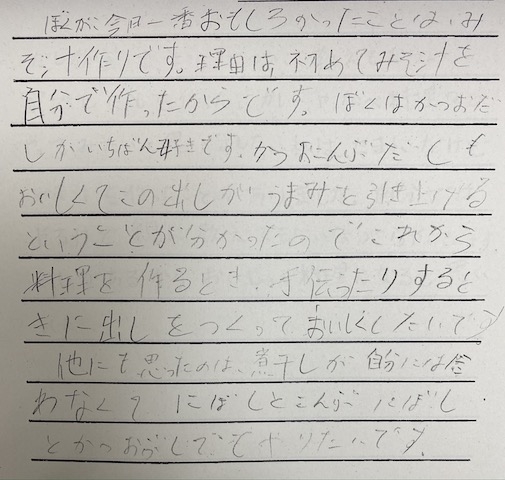 ぼくが今日一番おもしろかったことは、み
そ汁作りです。理由は、初めてみそ汁を
自分で作ったからです。ぼくはかつおだ
しがいちばん好きです。かつおこんぶだしも
おいしくてこの出しがうまみを引き上げる
ということが分かったのでこれから
料理を作るとき、手伝ったりすると
きに出しをつくって、おいしくしたいです
他にも思ったのは、煮干しが自分には合
わなくてにぼしとこんぶ、にぼし
とかつおぶしでもやりたいです。